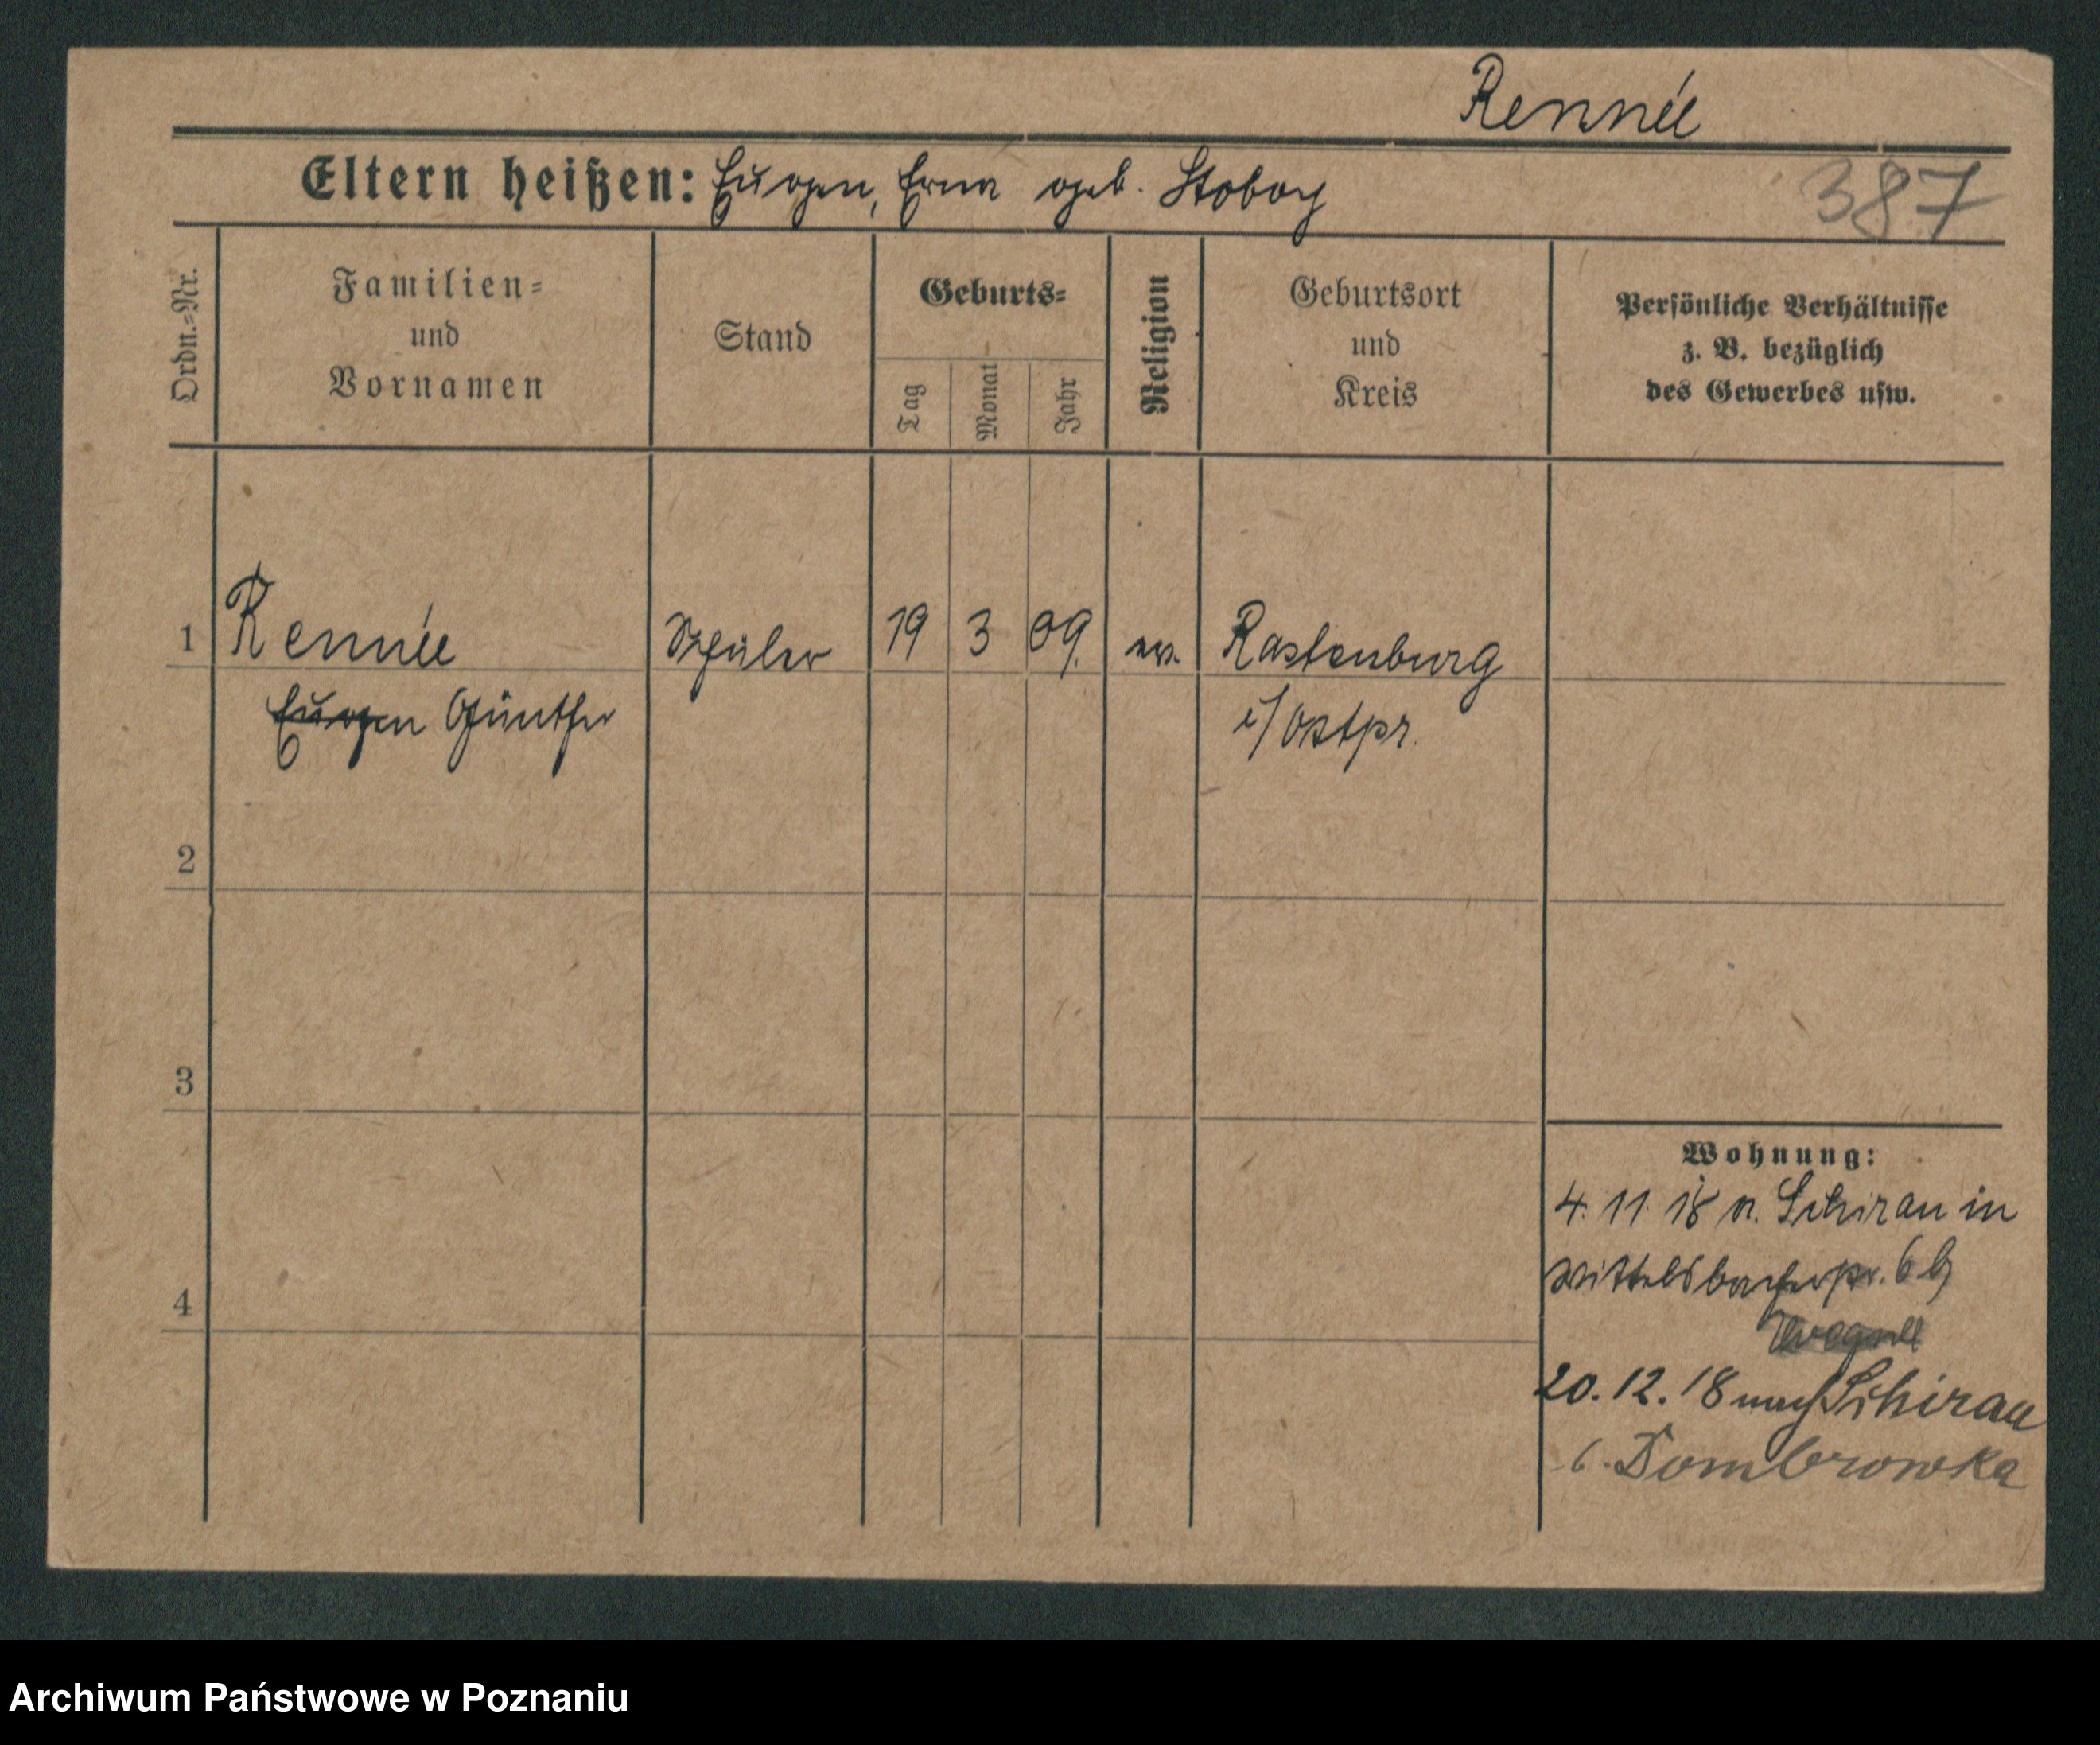 Rennée
Eltern heißen: Eugen, Erna geb. Stoboy
387
Ordn.=Nr.
Familien=
und
Vornamen
Stand
Geburts=
Tag
Monat
Jahr
Religion
Geburtsort
und
Kreis
Persönliche Verhältnisse
z. B. bezüglich
des Gewerbes usw.
1 Rennée Schüler 19 3 09. ev. Rastenburg
Eugen Günther i/Ostpr.
2
3
Wohnung:
4. 11. 18 n. Schirau in
Wittelsbacherstr. 6 b
4
20. 12. 18 nach Schirau
b. Dombrowka
Archiwum Państwowe w Poznaniu